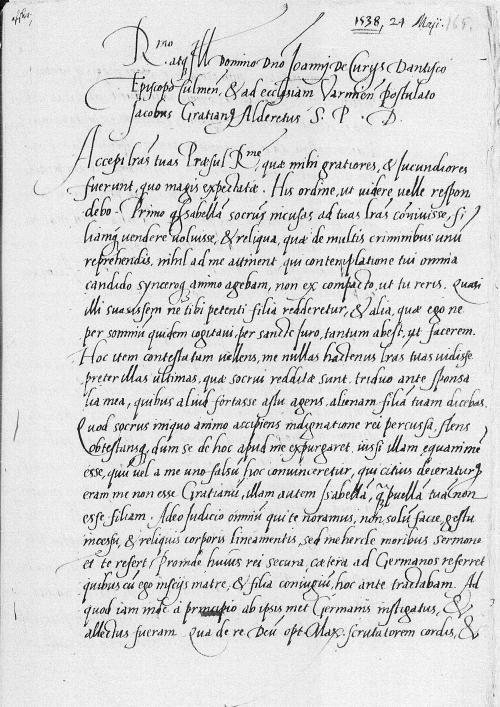 1538, 24 Maji. 165.
Rmo atq Ill Domino Dno Joanni De Curys Dantisco
Episcopo Culmen, & ad ecclesiam Varmien postulato
Jacobus Gratianq Alderetus S. P. D.
Accepi lras tuas Præsul Rme, quæ mihi gratiores, & jucundiores
fuerunt, quo magis expectatæ. His ordine, ut videre velle respon
debo. Primo q Isabellā socrus incusas ad tuas lras conivisse, fi
liamq vendere voluisse, & reliqua, quæ de multis criminibus unū
reprehendis, nihil ad me attinent, qui contemplatione tui omnia
candido synceroq animo agebam, non ex compacto, ut tu reris. Quasi
illi suasissem ne tibi petenti filia redderetur, & alia, quæ ego ne
per somniū quidem cogitavi, per sancte juro, tantum abest, ut facerem.
Hoc item contestatum velens, me nullas hactenus lras tuas vidisse
preter illas ultimas, quæ socrui redditæ sunt, triduo ante sponsa
lia mea, quibus aliud fortasse astu agens, alienam filiā tuam dicebas.
Quod socrus iniquo animo accipiens indignatione rei percussa, flens
obtestansq, dum se de hoc apud me expurgaret, iussi illam equanimē
esse, quū vel a me uno falsū hoc convinceretur, qui citius dejeraturq
eram me non esse Gratianū, illam autem Isabellā, q puellā tuā non
esse filiam. Adeo judicio omniū qui te noramus, non solū facie, gestu
incessu, & reliquis corporis lineamentis, sed mehercle moribus sermone
et te refert. Proinde huius rei secura, cætera ad Germanos referret
quibus cū ego inscijs matre, & filia conjugiū, hoc ante tractabam. Ad
quod iam inde a principio ab ipsis met Germanis instigatus, &
allectus fueram. Qua de re Deū opt. Max. scrutatorem cordis, &